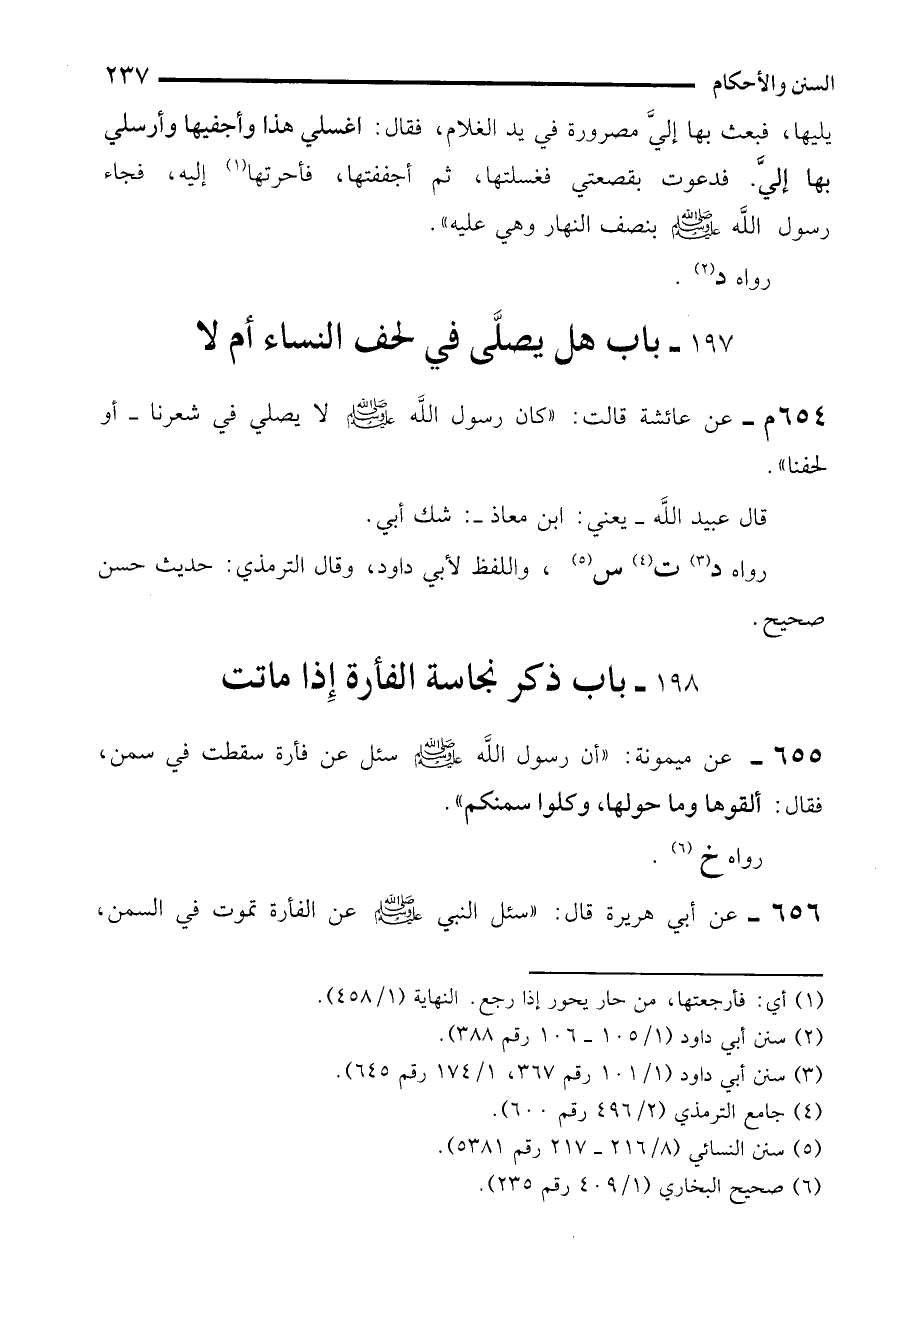 السنن والأحكام ٢٣٧
يليها، فبعث بها إليَّ مصرورة في يد الغلام، فقال: اغسلي هذا وأجفيها وأرسلي
بها إليَّ. فدعوت بقصعتي فغسلتها، ثم أجففتها، فأحرتها(١) إليه، فجاء
رسول اللَّه ﷺ بنصف النهار وهي عليه».
رواه د(٢) .
١٩٧ ـ باب هل يصلَّى في لحف النساء أم لا
٦٥٤م ـ عن عائشة قالت: «كان رسول اللَّه ﷺ لا يصلي في شعرنا ـ أو
لحفنا».
قال عبيد اللَّه ـ يعني: ابن معاذ ـ: شك أبي.
رواه د(٣) ت(٤) س(٥) ، واللفظ لأبي داود، وقال الترمذي: حديث حسن
صحيح.
١٩٨ ـ باب ذكر نجاسة الفأرة إذا ماتت
٦٥٥ ـ عن ميمونة: «أن رسول اللَّه ﷺ سئل عن فأرة سقطت في سمن،
فقال: ألقوها وما حولها، وكلوا سمنكم».
رواه خ (٦) .
٦٥٦ ـ عن أبي هريرة قال: «سئل النبي ﷺ عن الفأرة تموت في السمن،
(١) أي: فأرجعتها، من حار يحور إذا رجع. النهاية (١/ ٤٥٨).
(٢) سنن أبي داود (١/ ١٠٥ ـ ١٠٦ رقم ٣٨٨).
(٣) سنن أبي داود (١/ ١٠١ رقم ٣٦٧، ١/ ١٧٤ رقم ٦٤٥).
(٤) جامع الترمذي (٢/ ٤٩٦ رقم ٦٠٠).
(٥) سنن النسائي (٨/ ٢١٦ ـ ٢١٧ رقم ٥٣٨١).
(٦) صحيح البخاري (١/ ٤٠٩ رقم ٢٣٥).